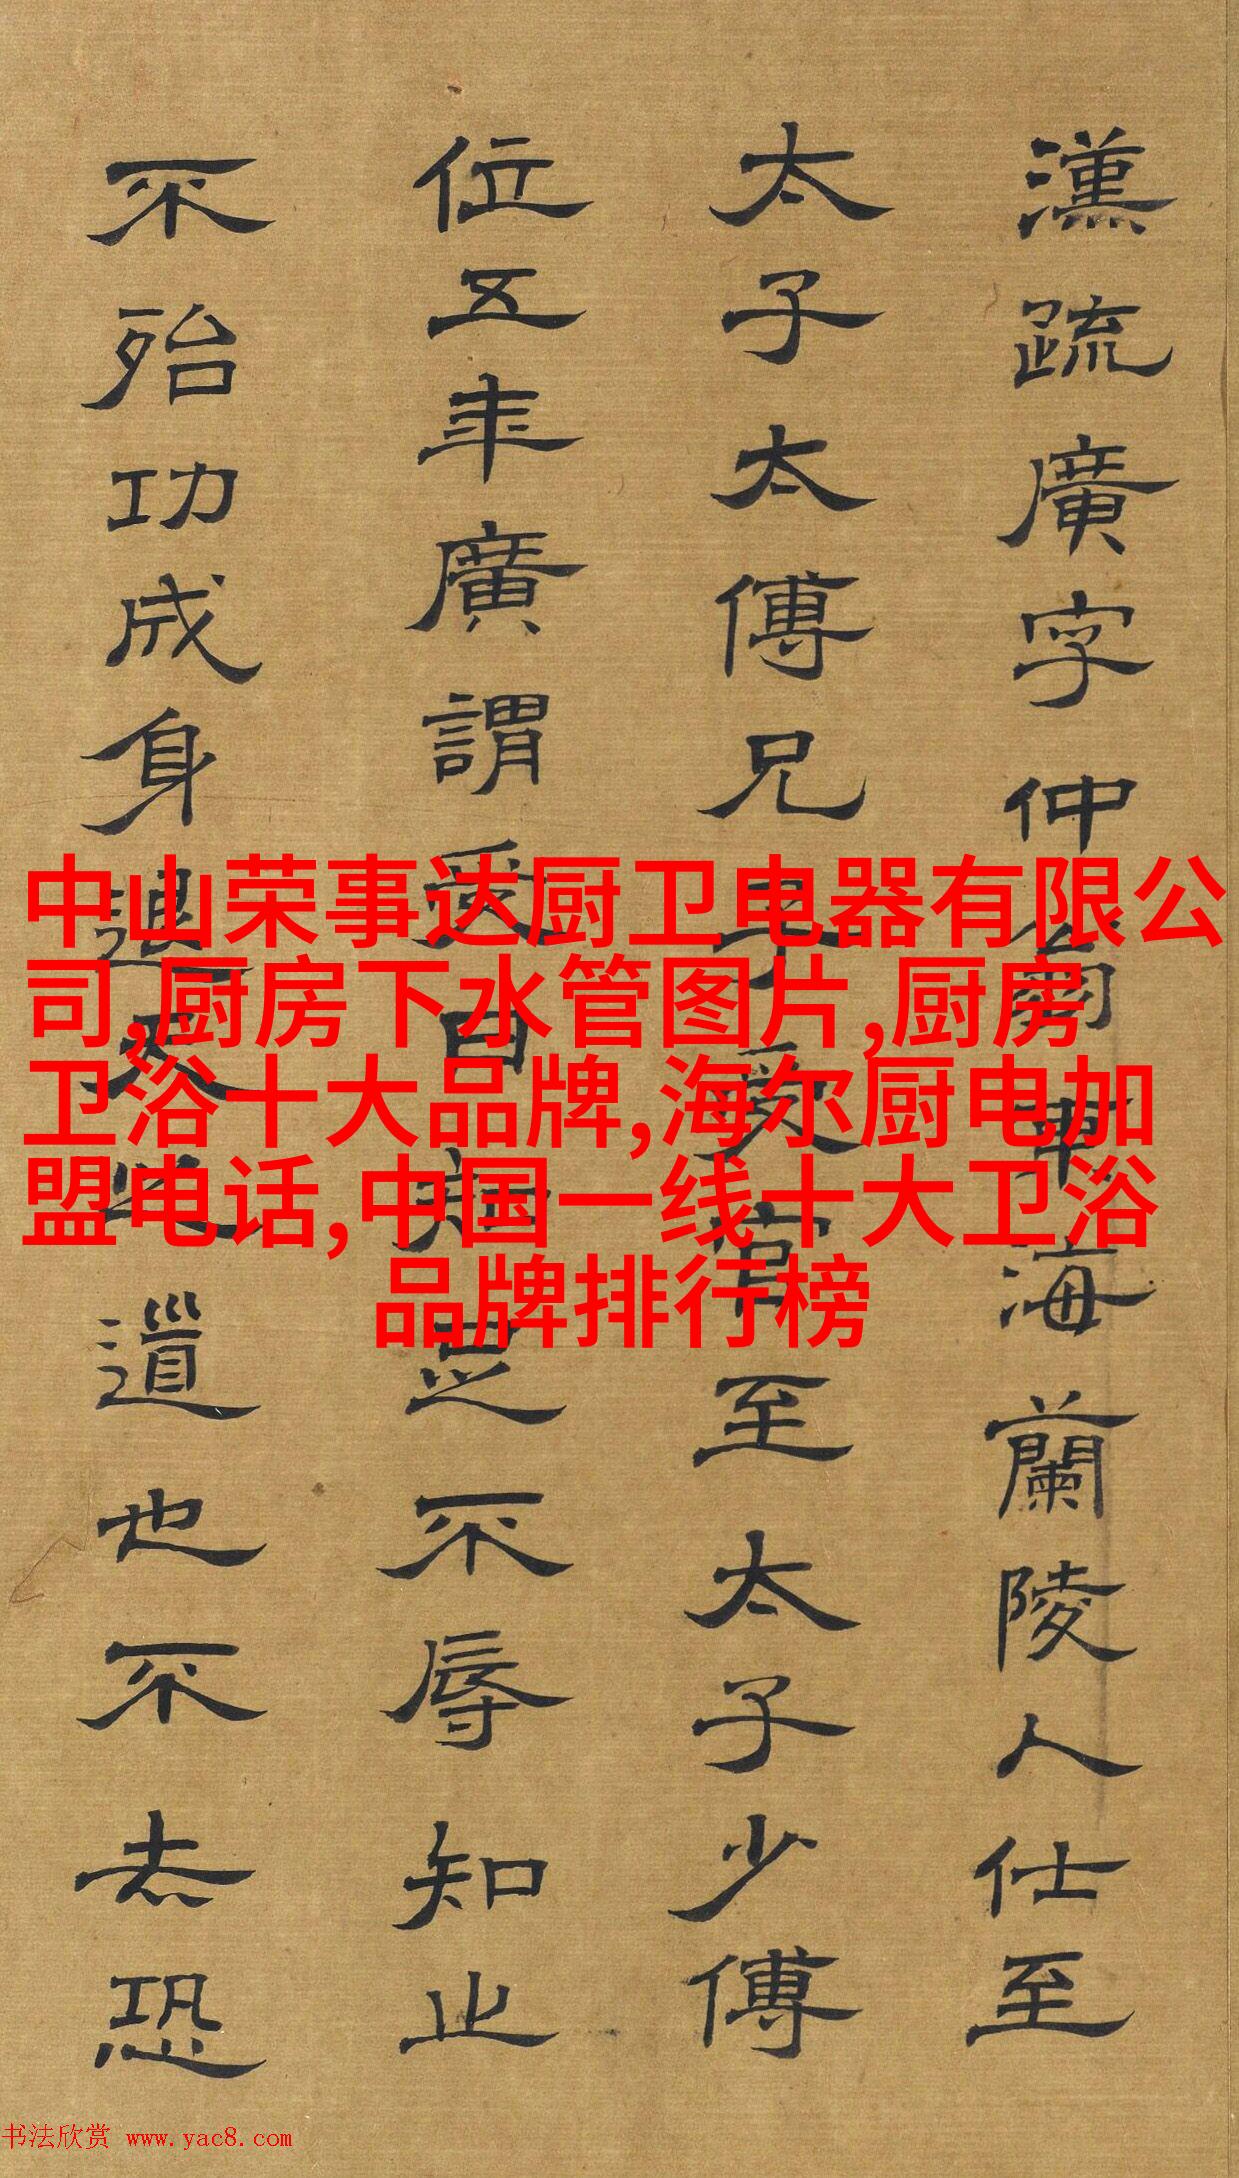 漢疏廣字仲翁東海蘭陵人仕至
太子太傅兄子受官至太子少傅
位五年廣謂受曰知足不辱知止
不殆功成身退天之道也不去恐
中山荣事达厨卫电器有限公
司,厨房下水管图片,厨房
卫浴十大品牌,海尔厨电加
盟电话,中国一线十大卫浴
品牌排行榜
书法欣赏 www.yac8.com